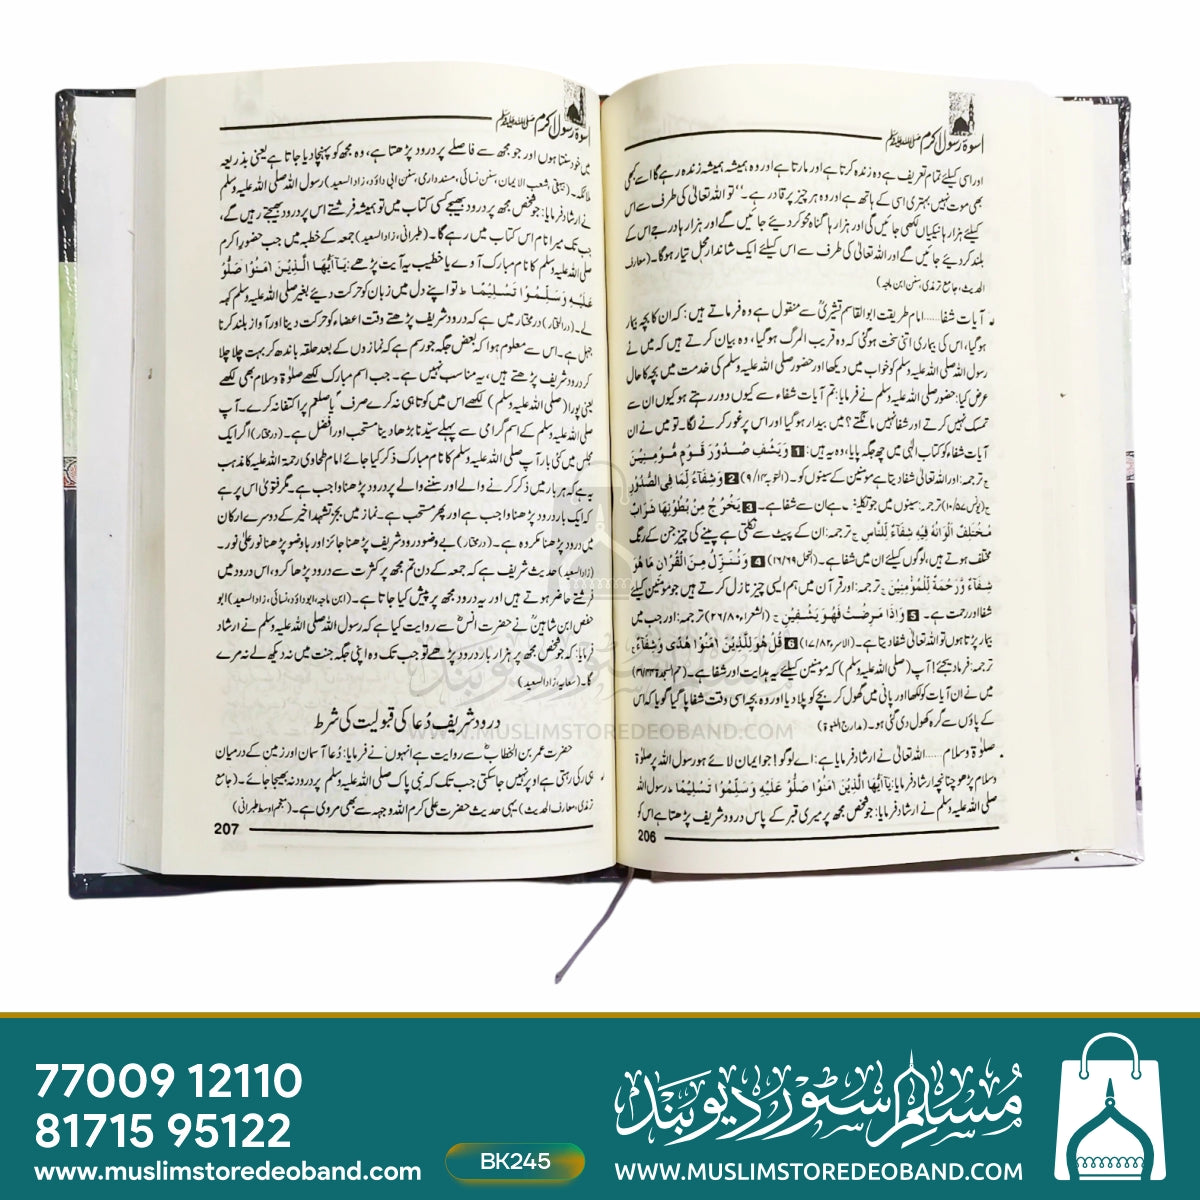 اسوۂ رسول اکرم صلی اللہ علیہ وسلم
اور اسی کیلئے تمام تعریف ہے وہ زندہ کرتا ہے اور مارتا ہے اور وہ ہمیشہ ہمیشہ زندہ رہے گا اسے کبھی
بھی موت نہیں بہتری اسی کے ہاتھ ہے اور وہ ہر چیز پر قادر ہے۔‘‘ تو اللہ تعالیٰ کی طرف سے اس
کیلئے ہزار ہا نیکیاں لکھی جائیں گی اور ہزار ہا گناہ محو کر دیے جائیں گے اور ہزار ہا درجے اس کے
بلند کر دیے جائیں گے اور اللہ تعالیٰ کی طرف سے اس کیلئے ایک شاندار محل تیار ہو گا۔ (معارف
الحدیث، جامع ترمذی، سنن ابن ماجہ)
آیات شفا...... امام طریقت ابوالقاسم قشیریؒ سے منقول ہے وہ فرماتے ہیں: کہ ان کا بچہ بیمار
ہو گیا، اس کی بیماری اتنی سخت ہو گئی کہ وہ قریب المرگ ہو گیا، وہ بیان کرتے ہیں کہ میں نے
رسول اللہ صلی اللہ علیہ وسلم کو خواب میں دیکھا اور حضور صلی اللہ علیہ وسلم کی خدمت میں بچہ کا حال
عرض کیا: حضور صلی اللہ علیہ وسلم نے فرمایا: تم آیات شفاء سے کیوں دور رہتے ہو کیوں ان سے
تمسک نہیں کرتے اور شفا نہیں مانگتے؟ میں بیدار ہو گیا اور اس پر غور کرنے لگا۔ تو میں نے ان
آیات شفاء کو کتاب الٰہی میں چھ جگہ پایا، وہ یہ ہیں: 1 وَیَشْفِ صُدُوْرَ قَوْمٍ مُّؤْمِنِیْنَ
ترجمہ: اور اللہ تعالیٰ شفا دیتا ہے مومنین کے سینوں کو۔ (التوبہ ۹/۱۴) 2 وَشِفَآءٌ لِّمَا فِی الصُّدُوْرِ
(یونس ۱۰/۵۷) ترجمہ: سینوں میں جو تکلیف ہے ان سے شفا ہے۔ 3 یَخْرُجُ مِنْ بُطُوْنِهَا شَرَابٌ
مُّخْتَلِفٌ اَلْوَانُهٗ فِیْهِ شِفَآءٌ لِّلنَّاسِ ترجمہ: ان کے پیٹ سے نکلتی ہے پینے کی چیز جن کے رنگ
مختلف ہوتے ہیں، لوگوں کیلئے ان میں شفا ہے۔ (النحل ۱۶/۶۹) 4 وَنُنَزِّلُ مِنَ الْقُرْاٰنِ مَا هُوَ
شِفَآءٌ وَّرَحْمَةٌ لِّلْمُؤْمِنِیْنَ ترجمہ: اور قرآن میں ہم ایسی چیز نازل کرتے ہیں جو مومنین کیلئے
شفا اور رحمت ہے۔ 5 وَاِذَا مَرِضْتُ فَهُوَ یَشْفِیْنِ (الشعراء ۲۶/۸۰) ترجمہ: اور جب میں
بیمار پڑتا ہوں تو اللہ تعالیٰ شفا دیتا ہے۔ (الاسراء ۱۷/۸۲) 6 قُلْ هُوَ لِلَّذِیْنَ اٰمَنُوْا هُدًی وَّشِفَآءٌ
ترجمہ: فرما دیجئے! آپ (صلی اللہ علیہ وسلم) کہ مومنین کیلئے یہ ہدایت اور شفا ہے۔ (حم السجدۃ ۴۱/۴۴)
میں نے ان آیات کو لکھا اور پانی میں گھول کر بچے کو پلا دیا اور وہ بچہ اسی وقت شفا پا گیا گویا کہ اس
کے پاؤں سے گرہ کھول دی گئی ہو۔ (مدارج النبوۃ)
صلوٰۃ و سلام...... اللہ تعالیٰ نے ارشاد فرمایا ہے: اے لوگو! جو ایمان لائے ہو رسول اللہ پر صلوٰۃ
وسلام پڑھو چنانچہ ارشاد فرمایا: یٰٓاَیُّهَا الَّذِیْنَ اٰمَنُوْا صَلُّوْ عَلَیْهِ وَسَلِّمُوْا تَسْلِیْمًا رسول اللہ
صلی اللہ علیہ وسلم نے ارشاد فرمایا: جو شخص مجھ پر میری قبر کے پاس درود شریف پڑھتا ہے اس کو
206
اسوۂ رسول اکرم صلی اللہ علیہ وسلم
میں خود سنتا ہوں اور جو مجھ سے فاصلے پر درود پڑھتا ہے، وہ مجھ کو پہنچا دیا جاتا ہے یعنی بذریعہ
ملائکہ۔ (بیہقی شعب الایمان، سنن نسائی، مسند دارمی، سنن ابی داؤد، زاد السعید) رسول اللہ صلی اللہ علیہ وسلم
نے ارشاد فرمایا: جو شخص مجھ پر درود بھیجے کسی کتاب میں تو ہمیشہ فرشتے اس پر درود بھیجتے رہیں گے،
جب تک میرا نام اس کتاب میں رہے گا۔ (طبرانی، زاد السعید) جمعہ کے خطبہ میں جب حضور اکرم
صلی اللہ علیہ وسلم کا نام مبارک آوے یا خطیب یہ آیت پڑھے: یٰٓاَیُّهَا الَّذِیْنَ اٰمَنُوْا صَلُّوْ
عَلَیْهِ وَسَلِّمُوْا تَسْلِیْمًا تو اپنے دل میں زبان کو حرکت دیئے بغیر صلی اللہ علیہ وسلم کہہ
لے۔ (درالمختار) درمختار میں ہے کہ درود شریف پڑھتے وقت اعضاء کو حرکت دینا اور آواز بلند کرنا
جہل ہے۔ اس سے معلوم ہوا کہ بعض جگہ جو رسم ہے کہ نمازوں کے بعد حلقہ باندھ کر بہت چلا چلا
کر درود شریف پڑھتے ہیں، یہ مناسب نہیں ہے۔ جب اسم مبارک لکھے صلوٰۃ و سلام بھی لکھے
یعنی پورا (صلی اللہ علیہ وسلم) لکھے اس میں کوتاہی نہ کرے صرف ؐ یا صلعم پر اکتفا نہ کرے۔ آپ
صلی اللہ علیہ وسلم کے اسم گرامی سے پہلے سیّدنا بڑھا دینا مستحب اور افضل ہے۔ (درمختار) اگر ایک
مجلس میں کئی بار آپ صلی اللہ علیہ وسلم کا نام مبارک ذکر کیا جائے امام طحاوی رحمۃ اللہ علیہ کا مذہب
یہ ہے کہ ہر بار میں ذکر کرنے والے اور سننے والے پر درود پڑھنا واجب ہے۔ مگر فتویٰ اس پر ہے
کہ ایک بار درود پڑھنا واجب ہے اور پھر مستحب ہے۔ نماز میں بجز تشہد اخیر کے دوسرے ارکان
میں درود پڑھنا مکروہ ہے۔ (درمختار) بے وضو درود شریف پڑھنا جائز اور با وضو پڑھنا نور علیٰ نور۔
(زاد السعید) حدیث شریف ہے کہ جمعہ کے دن تم مجھ پر کثرت سے درود پڑھا کرو، اس روز میں
فرشتے حاضر ہوتے ہیں اور یہ درود مجھ پر پیش کیا جاتا ہے۔ (ابن ماجہ، ابوداؤد، نسائی، زاد السعید) ابو
حفص ابن شاہینؒ نے حضرت انسؓ سے روایت کیا ہے کہ رسول اللہ صلی اللہ علیہ وسلم نے ارشاد
فرمایا: کہ جو شخص مجھ پر ہزار بار درود پڑھے تو جب تک وہ اپنی جگہ جنت میں نہ دیکھ لے نہ مرے
گا۔ (سعایہ، زاد السعید)
درود شریف دُعا کی قبولیت کی شرط
حضرت عمر بن الخطابؓ سے روایت ہے انہوں نے فرمایا: دُعا آسمان اور زمین کے درمیان
ہی رکی رہتی ہے اوپر نہیں جا سکتی جب تک کہ نبی پاک صلی اللہ علیہ وسلم پر درود نہ بھیجا جائے۔ (جامع
ترمذی، معارف الحدیث) یہی حدیث حضرت علی کرم اللہ وجہہ سے بھی مروی ہے۔ (معجم اوسط طبرانی)
207
مسلم سٹور دیوبند
WWW.MUSLIMSTOREDEOBAND.COM
77009 12110
81715 95122
www.muslimstoredeoband.com
BK245
مسلم سٹور دیوبند
WWW.MUSLIMSTOREDEOBAND.COM